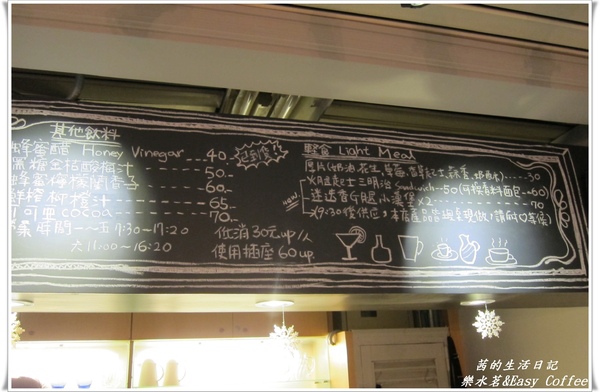 其他飲料
蜂蜜醋 Honey Vinegar 40.
黑糖金桔酸梅汁 50.
蜂蜜檸檬 60.
鮮榨柳橙汁 65
可可 cocoa 70.
營業時間 一~五 7:30~17:20
六 11:00~16:20
低消30元up/人
使用插座60up.
輕食 Light Meal
厚片(奶油.花生.草莓.蒜香.奶酥) 30
起士三明治 Sandwich 50
迷迭香 小漢堡 x2 70
(9:30後供應,本店產品皆
茜的生活日記
樂水茗&Easy Coffee